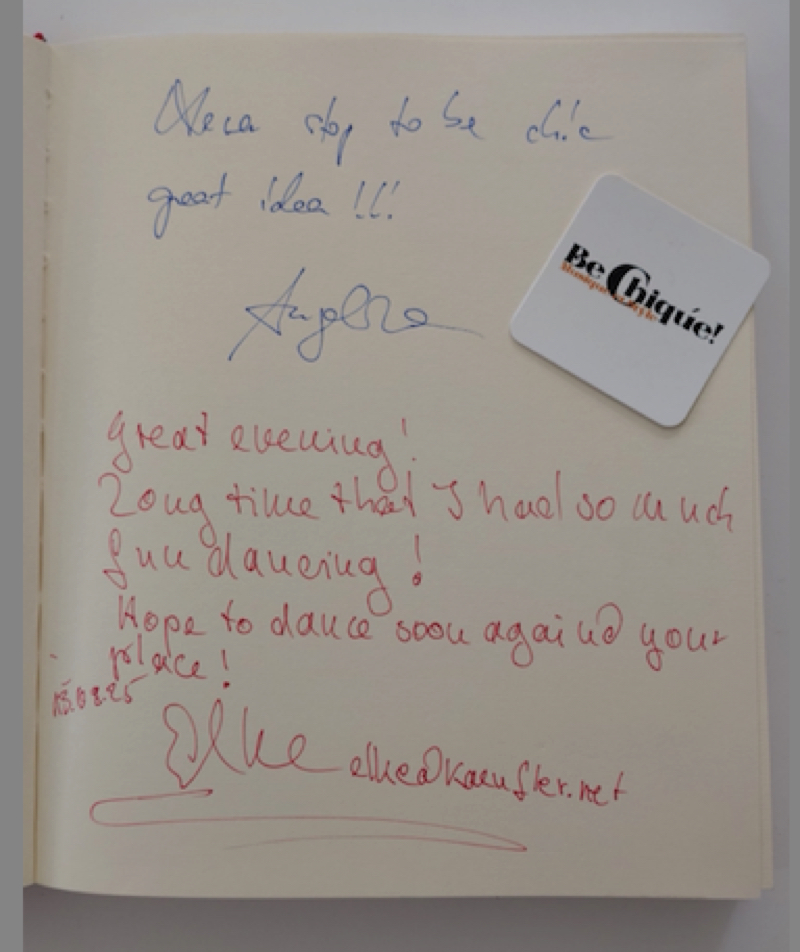 Never stop to be chic
great idea !!!
Be Chique!
Angelika
Great evening!
Long time that I had so much
fun dancing!
Hope to dance soon again @ your
place!
13.08.25
Elke elke@kaeufler.net